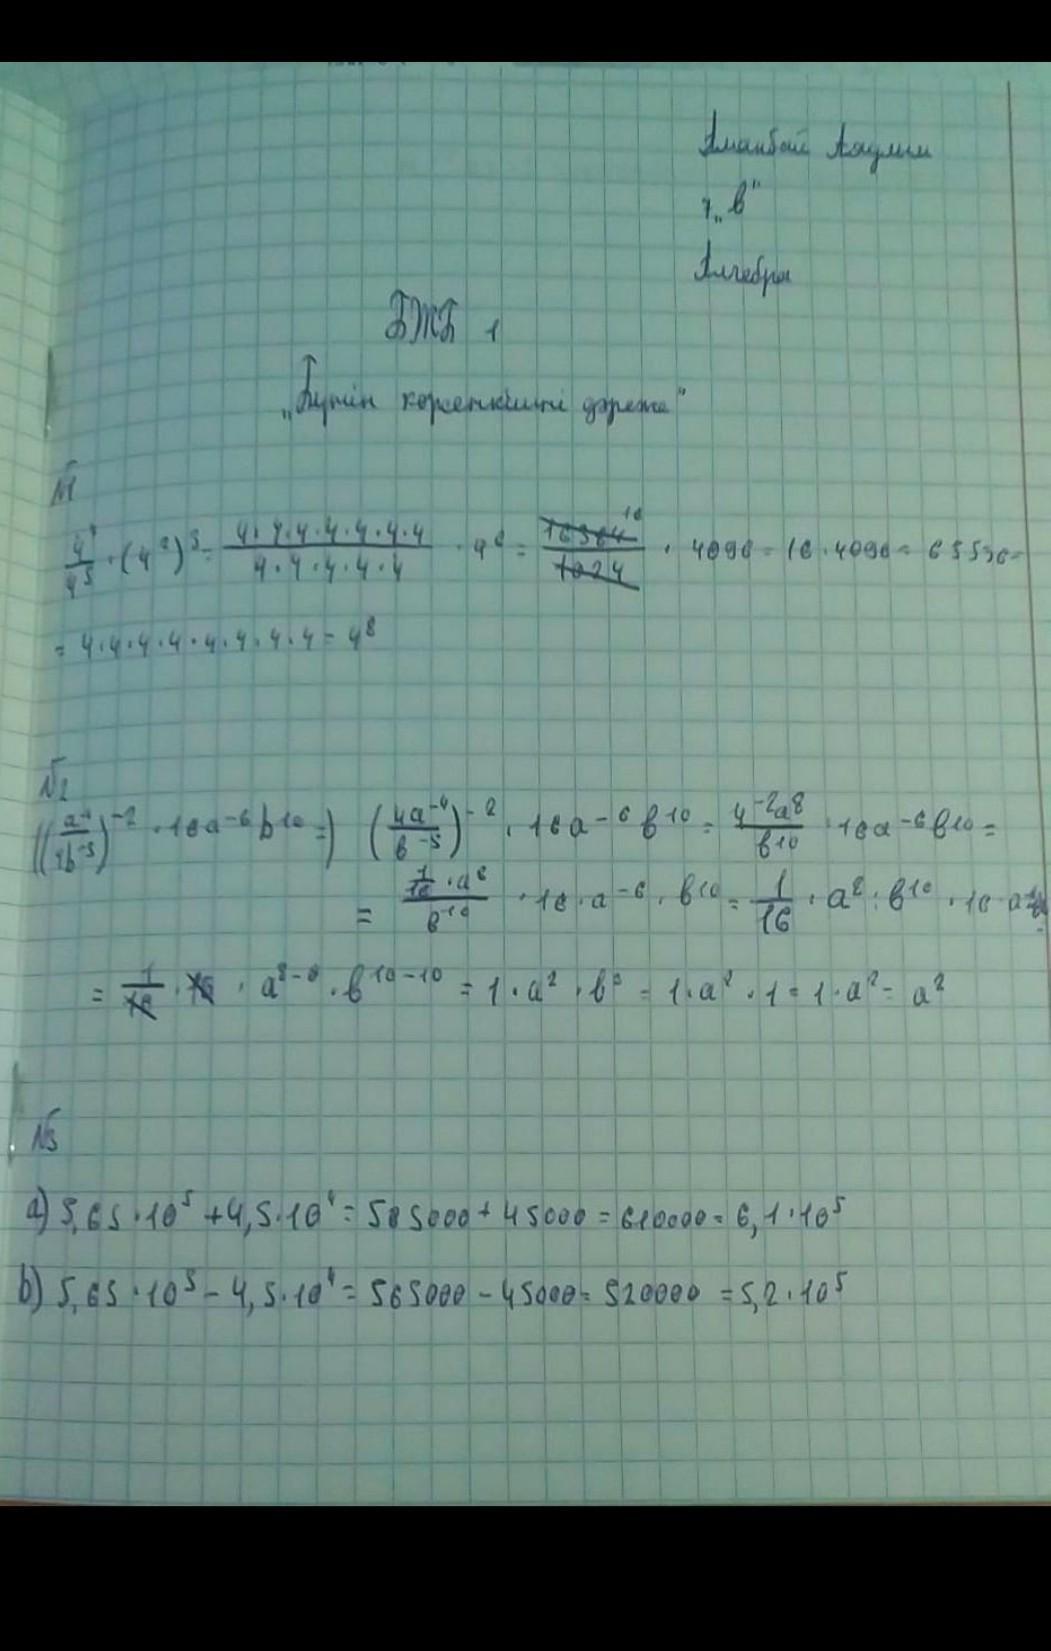 Аманбай Аяулым
7 „в"
Алгебра
БЖБ 1
„Бүтін көрсеткішті дәреже"
№1
4⁷/4⁵ · (4²)³ = 4·4·4·4·4·4·4/4·4·4·4·4 · 4⁶ = 16384/1024 16 · 4096 = 16 · 4096 = 65536 =
= 4·4·4·4·4·4·4·4 = 4⁸
№2
((a⁻⁴/4b⁻⁵)⁻² · 16a⁻⁶b¹⁰ =) (4a⁻⁴/b⁻⁵)⁻² · 16a⁻⁶b¹⁰ = 4⁻²a⁸/b¹⁰ · 16a⁻⁶b¹⁰ =
= 1/16 · a⁸/b¹⁰ · 16 · a⁻⁶ · b¹⁰ = 1/16 · a⁸ : b¹⁰ · 16 · a
= 1/16 · 16 · a⁸⁻⁶ · b¹⁰⁻¹⁰ = 1 · a² · b⁰ = 1 · a² · 1 = 1 · a² = a²
№3
a) 5,65 · 10⁵ + 4,5 · 10⁴ = 565000 + 45000 = 610000 = 6,1 · 10⁵
b) 5,65 · 10⁵ − 4,5 · 10⁴ = 565000 − 45000 = 520000 = 5,2 · 10⁵